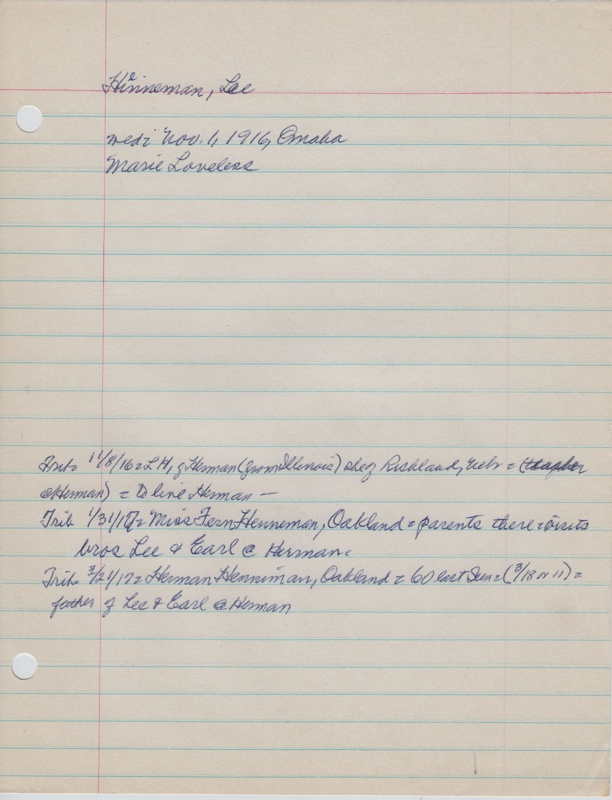 Hinneman, Lee
e
med: Nov. 1, 1916, Omaha
Marie Loveless
Trib 11/8/16 = LH, of Herman (from Illinois) she of Richland, Nebr = (teacher
@ Herman) = to live Herman —
Trib 1/31/17 = Miss Fern Henneman, Oakland = parents there = visits
bros Lee & Earl @ Herman.
Trib 3/21/17 = Herman Henniman, Oakland = 60 last Sun = (3/18 or 11) =
father of Lee & Earl @ Herman